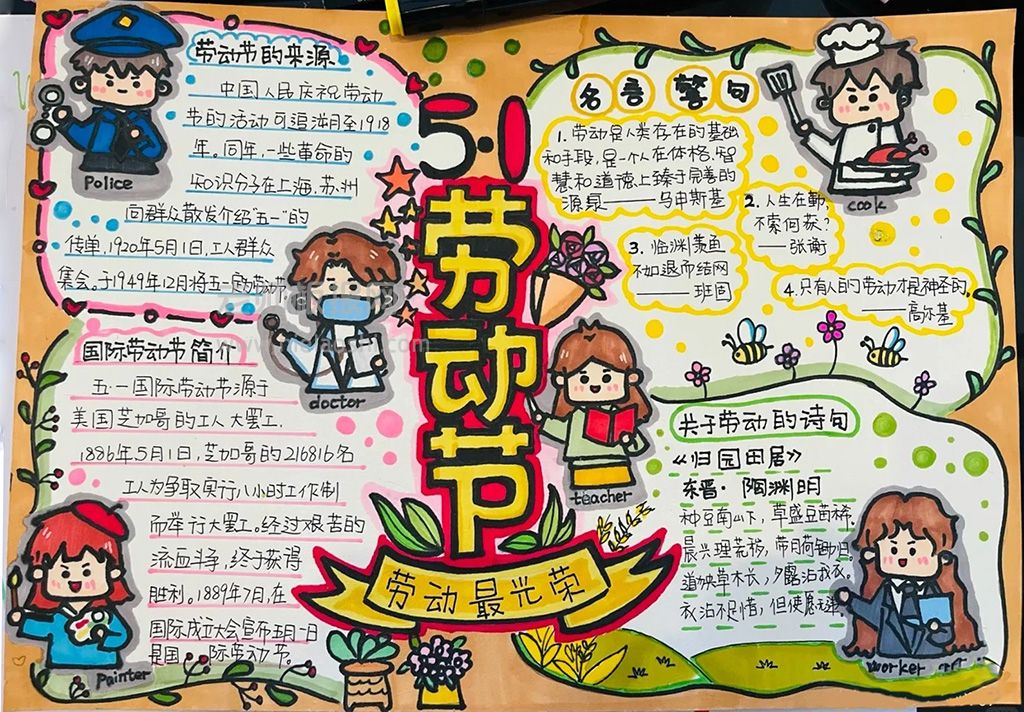 劳动节的来源
中国人民庆祝劳动
节的活动可追溯月至1918
年。同年,一些革命的
知识分子在上海、苏州
向群众散发介绍"五一"的
传单,1920年5月1日,工人群众
集会。于1949年12月将五一定为劳动节
Police
doctor
国际劳动节简介
五·一国际劳动节源于
美国芝加哥的工人大罢工,
1886年5月1日,芝加哥的216816名
工人为争取实行八小时工作制
而举行大罢工。经过艰苦的
流血斗争,终于获得
胜利。1889年7月,在
国际成立大会宣布五月一日
是国 际劳动节。
Painter
5·1
劳动节
劳动最光荣
teacher
名言警句
1. 劳动是人类存在的基础
和手段,是一个人在体格、智
慧和道德上臻于完善的
源泉———马申斯基
2. 人生在勤,
不索何获?
——张衡
3. 临渊羡鱼
不如退而结网
———班固
4.只有人的劳动才是神圣的。
——高尔基
cook
关于劳动的诗句
《归园田居》
东晋·陶渊明
种豆南山下,草盛豆苗稀。
晨兴理荒秽,带月荷锄归。
道狭草木长,夕露沾我衣。
衣沾不足惜,但使愿无违
worker